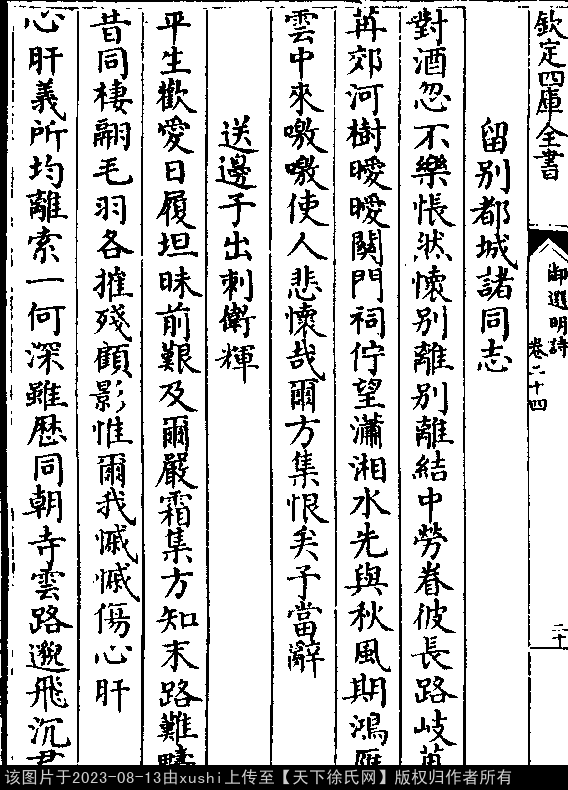 欽定四庫全書
御選明詩
卷二十四
二十
留别都城諸同志
對酒忽不樂悵然懷别離别離結中勞眷彼長路岐
苒郊河樹曖曖闗門祠佇望瀟湘水先與秋風期鴻雁
雲中來嗷嗷使人悲懷哉爾方集恨矣子當辭
送邊子出刺衛輝
平生歡愛日履坦昧前艱及爾嚴霜集方知末路難疇
昔同棲翮毛羽各摧殘顧影惟爾我慽慽傷心肝
心肝義所均離索一何深雖歴同朝寺雲路邈飛沉君
该图片于2023-08-13由xushi上传至【天下徐氏网】版权归作者所有